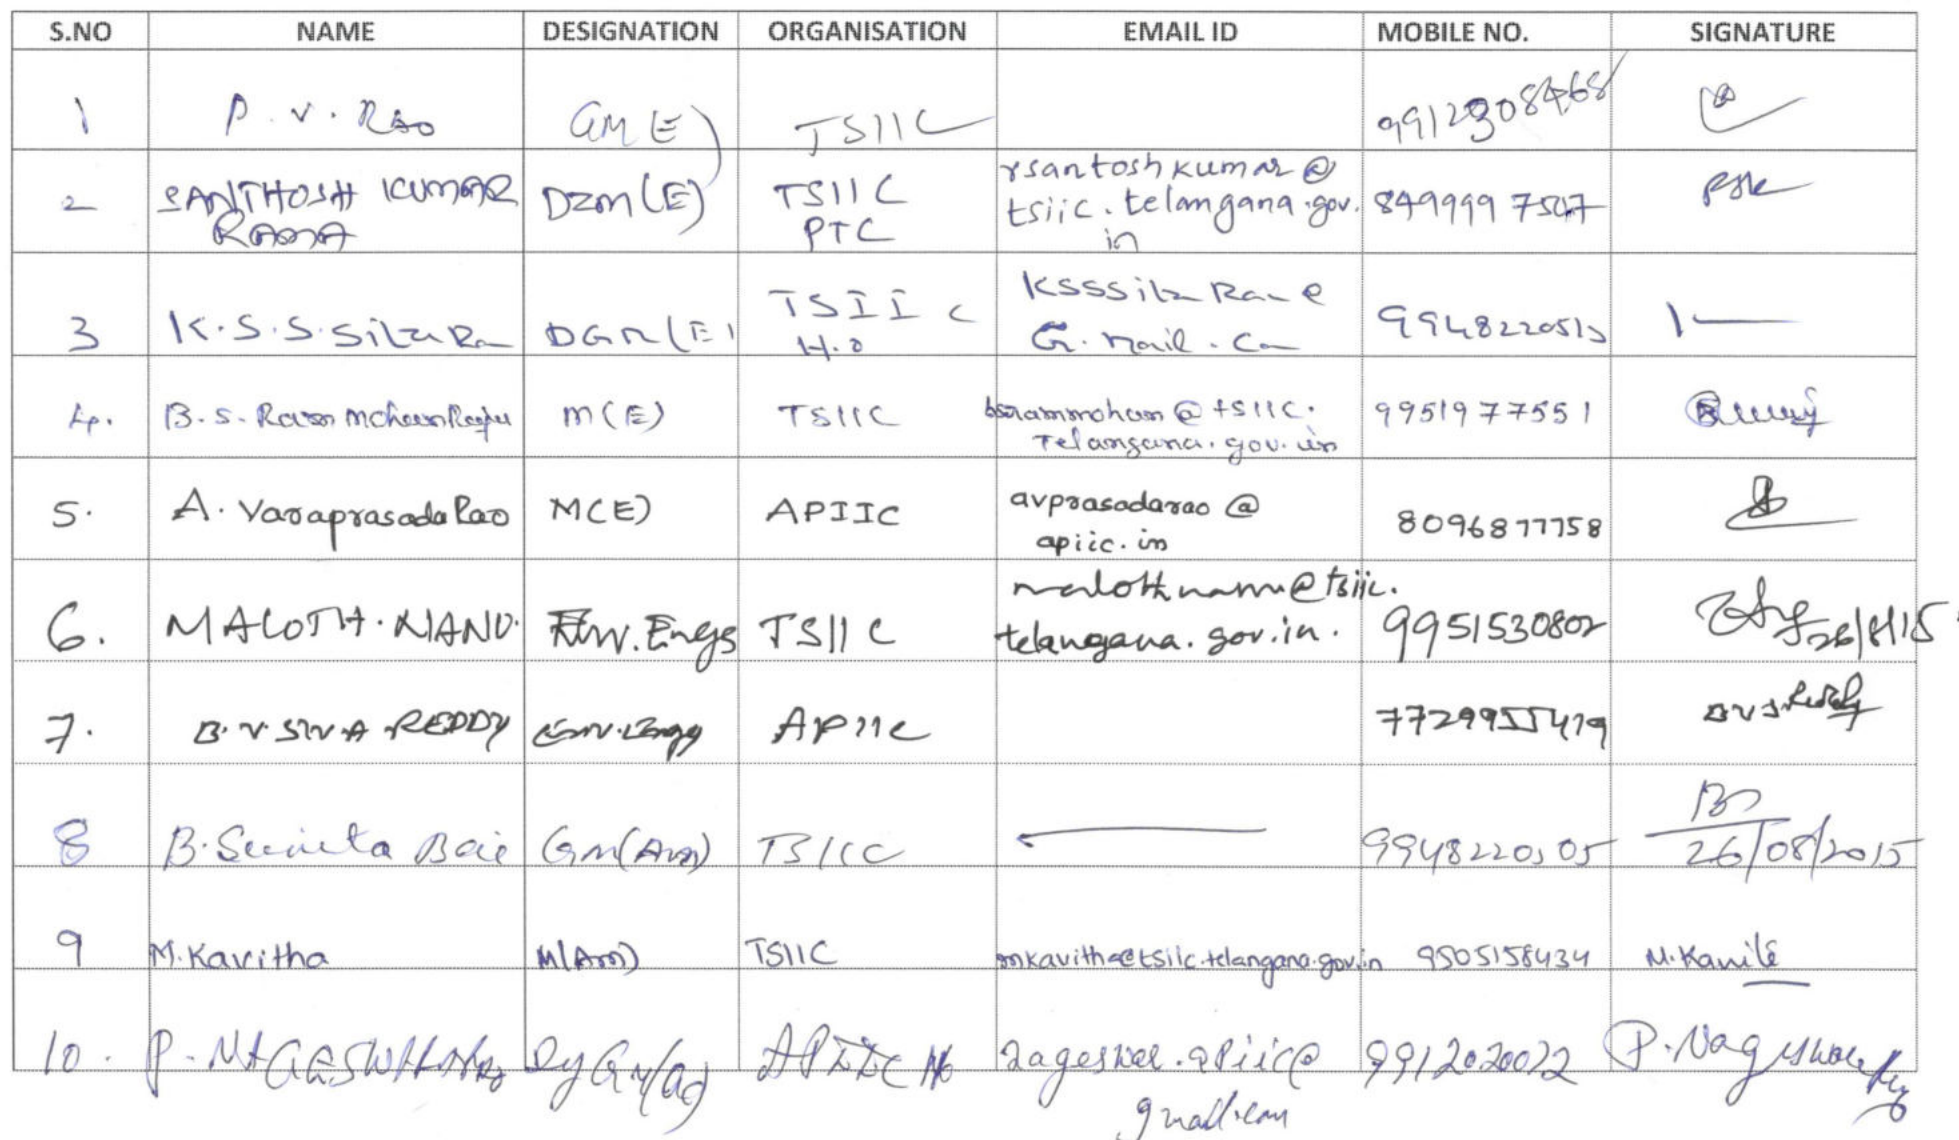 S.NO NAME DESIGNATION ORGANISATION EMAIL ID MOBILE NO. SIGNATURE
1 P. V. Rao GM(E) TSIIC 9912308468
2 SANTHOSH KUMAR DZM(E) TSIIC rsantoshkumar@
RAMA PTC tsiic.telangana.gov. 8499997507
in
3 K.S.S.Sita Ra DGM(E) TSIIC KSSSita Ra @
H.O G.mail.Co 994822051
4. B.S. Ram Mohan Raju M(E) TSIIC bsrammohan@tsiic. 9951977551
Telangana.gov.in
5. A. Varaprasada Rao M(E) APIIC avprasadarao@ 8096877758
apiic.in
6. MALOTH.NANU. Env.Engg TSIIC malothnanu@tsiic. 9951530802 26/8/15
telangana.gov.in.
7. B.V SIVA REDDY Env.Engg APIIC 7729955419 BVS Reddy
8 B.Sunita Bai GM(Am) TSIIC 9948220505 26/08/2015
9 M.Kavitha M(Am) TSIIC mkavitha@tsiic.telangana.gov.in 9505158434 M.Kavita
10. P. NAGESWARA Rao Dy GM( APIIC Ho nageswar.apiic@ 9912020022 P.Nageswara
gmail.com